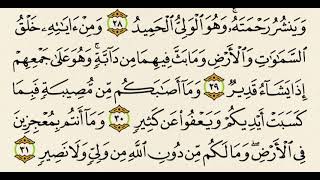 وَيَنشُرُ رَحْمَتَهُۥ ۚ وَهُوَ ٱلْوَلِىُّ ٱلْحَمِيدُ ٢٨ وَمِنْ ءَايَـٰتِهِۦ خَلْقُ
ٱلسَّمَـٰوَٰتِ وَٱلْأَرْضِ وَمَا بَثَّ فِيهِمَا مِن دَآبَّةٍ ۚ وَهُوَ عَلَىٰ جَمْعِهِمْ
إِذَا يَشَآءُ قَدِيرٌ ٢٩ وَمَآ أَصَـٰبَكُم مِّن مُّصِيبَةٍ فَبِمَا
كَسَبَتْ أَيْدِيكُمْ وَيَعْفُوا۟ عَن كَثِيرٍ ٣٠ وَمَآ أَنتُم بِمُعْجِزِينَ
فِى ٱلْأَرْضِ ۖ وَمَا لَكُم مِّن دُونِ ٱللَّهِ مِن وَلِىٍّ وَلَا نَصِيرٍ ٣١